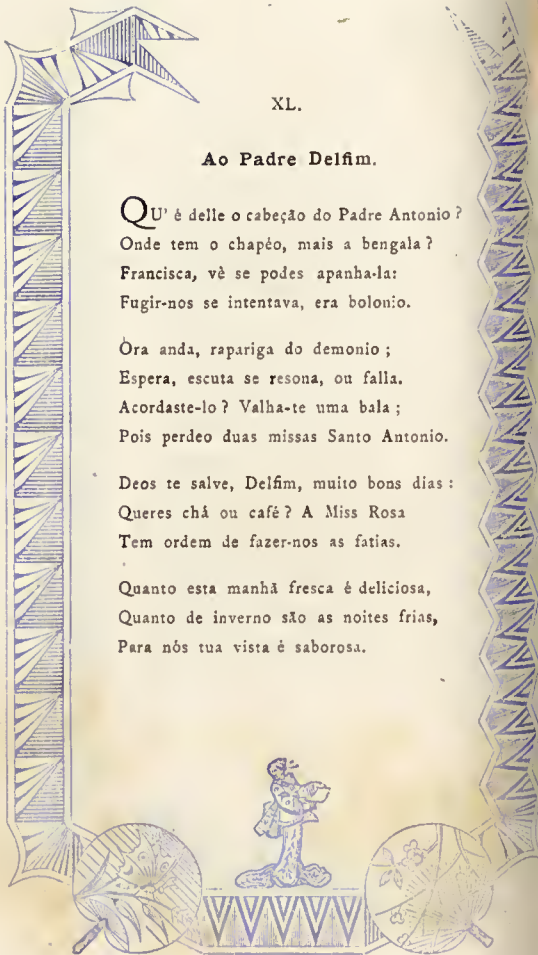 XL.
Ao Padre Delfim.
QU' é delle o cabeção do Padre Antonio?
Onde tem o chapéo, mais a bengala?
Francisca, vè se podes apanha-la:
Fugir-nos se intentava, era bolonio.
Òra anda, rapariga do demonio;
Espera, escuta se resona, ou falla.
Acordaste-lo? Valha-te uma bala;
Pois perdeo duas missas Santo Antonio.
Deos te salve, Delfim, muito bons dias:
Queres chá ou café? A Miss Rosa
Tem ordem de fazer-nos as fatias.
Quanto esta manhã fresca é deliciosa,
Quanto de inverno são as noites frias,
Para nós tua vista é saborosa.